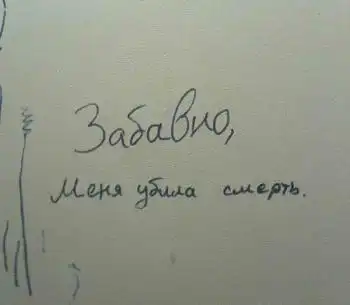 Забавно,
Меня убила смерть.